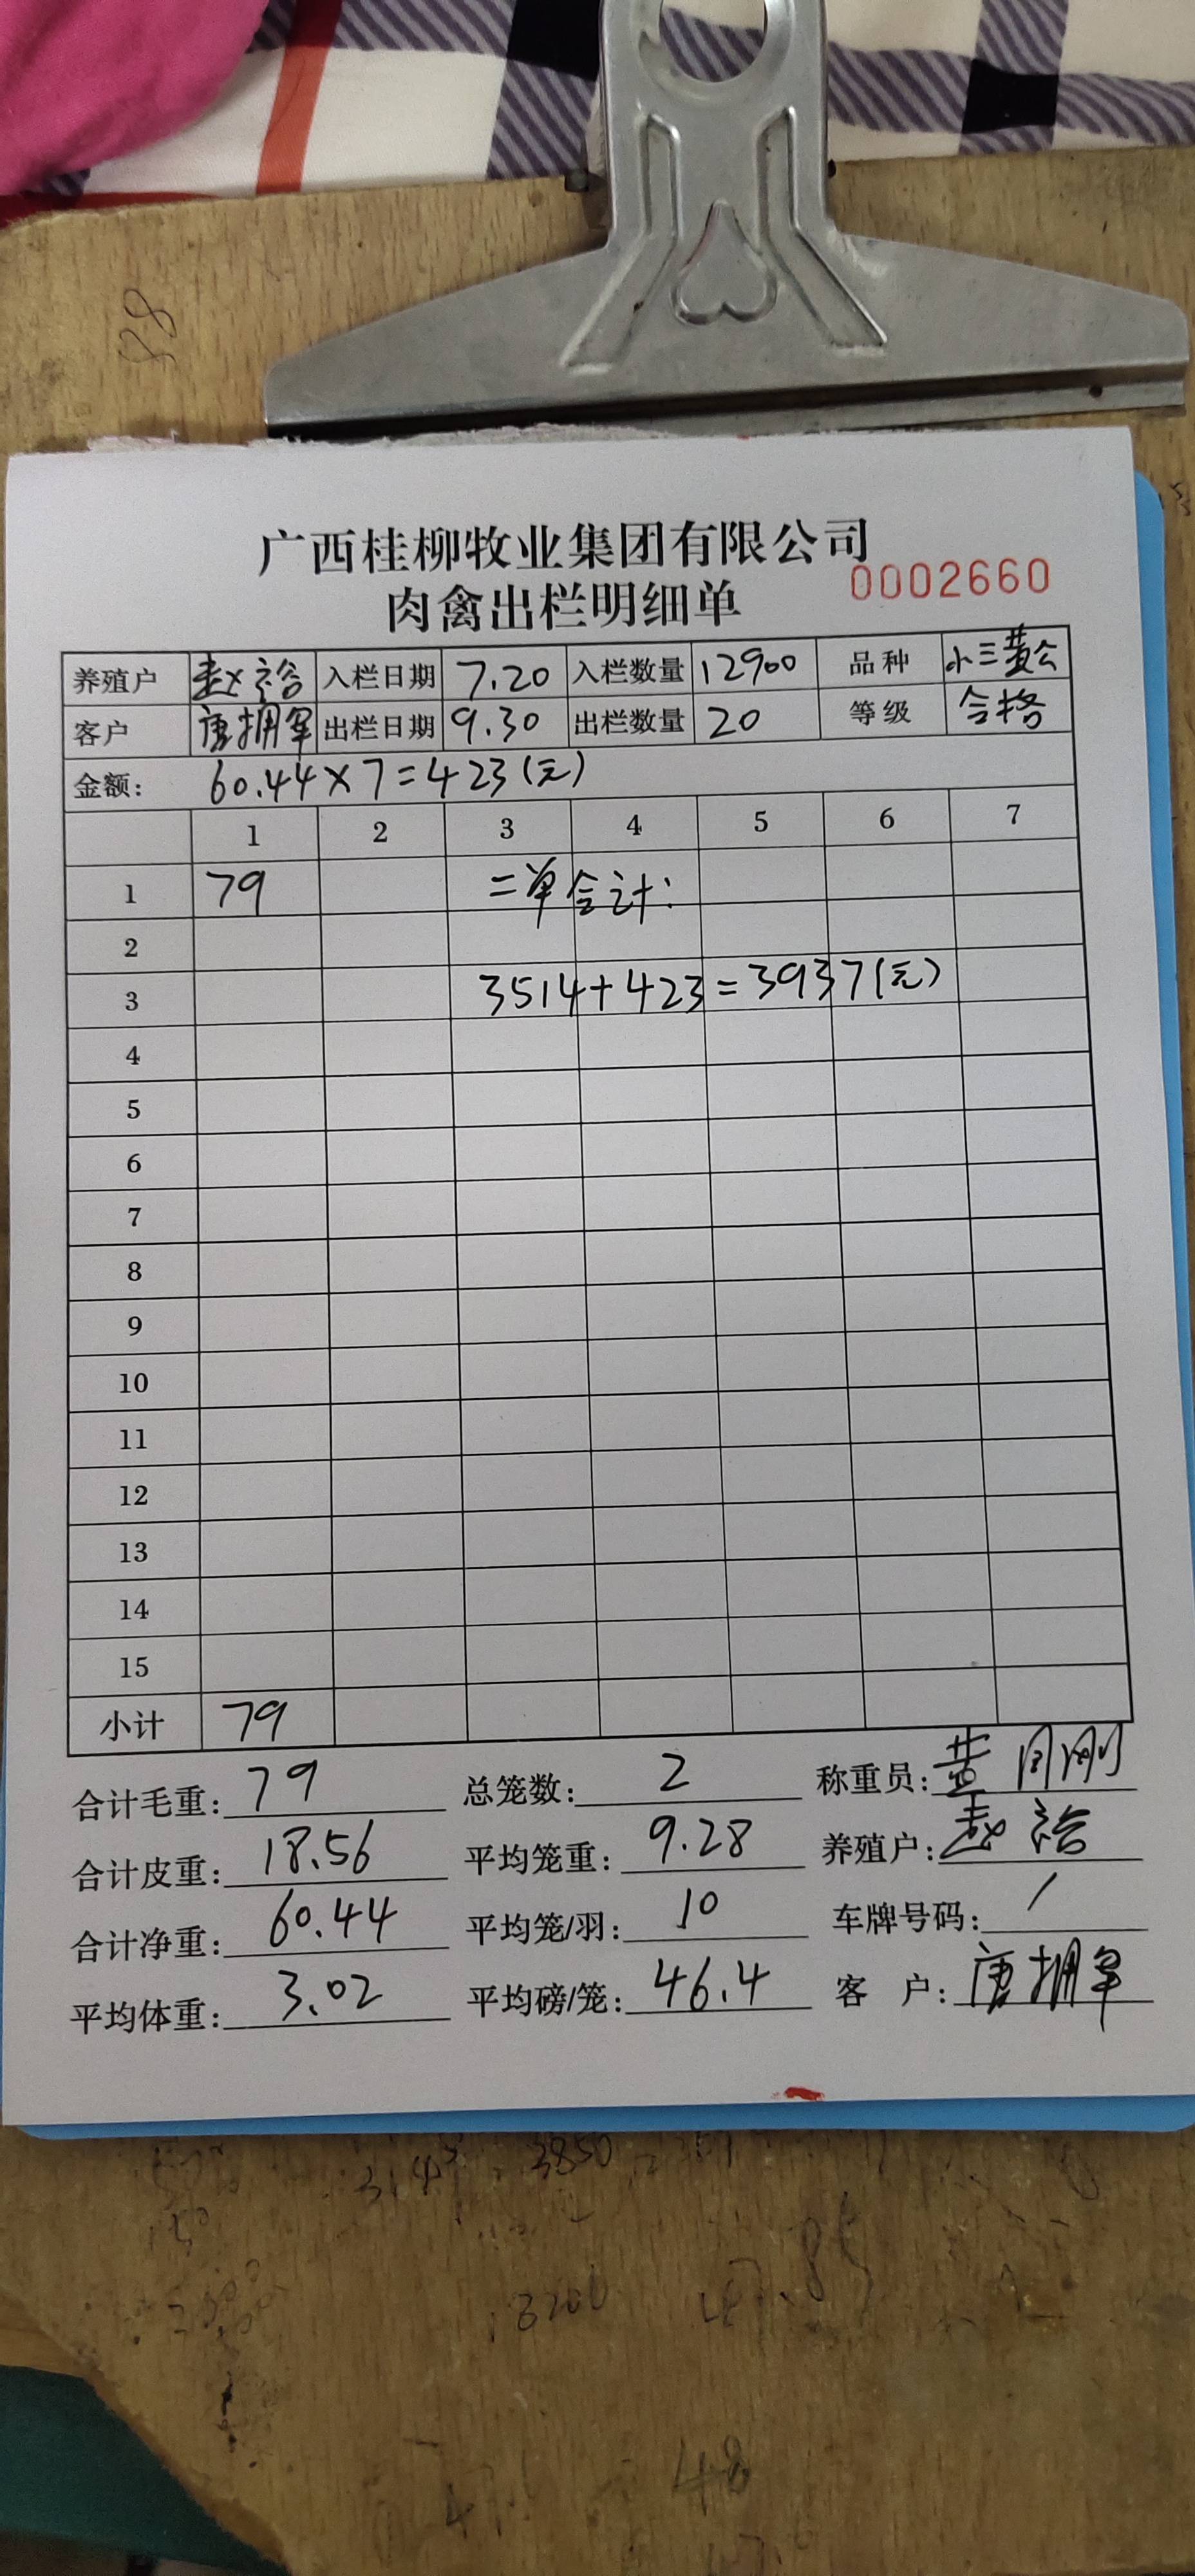 广西桂柳牧业集团有限公司
肉禽出栏明细单 0002660
养殖户 赵裕 入栏日期 7.20 入栏数量 12900 品种 小三黄公
客户 唐拥军 出栏日期 9.30 出栏数量 20 等级 合格
金额: 60.44×7=423(元)
1 2 3 4 5 6 7
1 79 二单合计:
2
3 3514+423=3937(元)
4
5
6
7
8
9
10
11
12
13
14
15
小计 79
合计毛重: 79 总笼数: 2 称重员: 黄周刚
合计皮重: 18.56 平均笼重: 9.28 养殖户: 赵裕
合计净重: 60.44 平均笼/羽: 10 车牌号码: /
平均体重: 3.02 平均磅/笼: 46.4 客 户: 唐拥军
3850
48